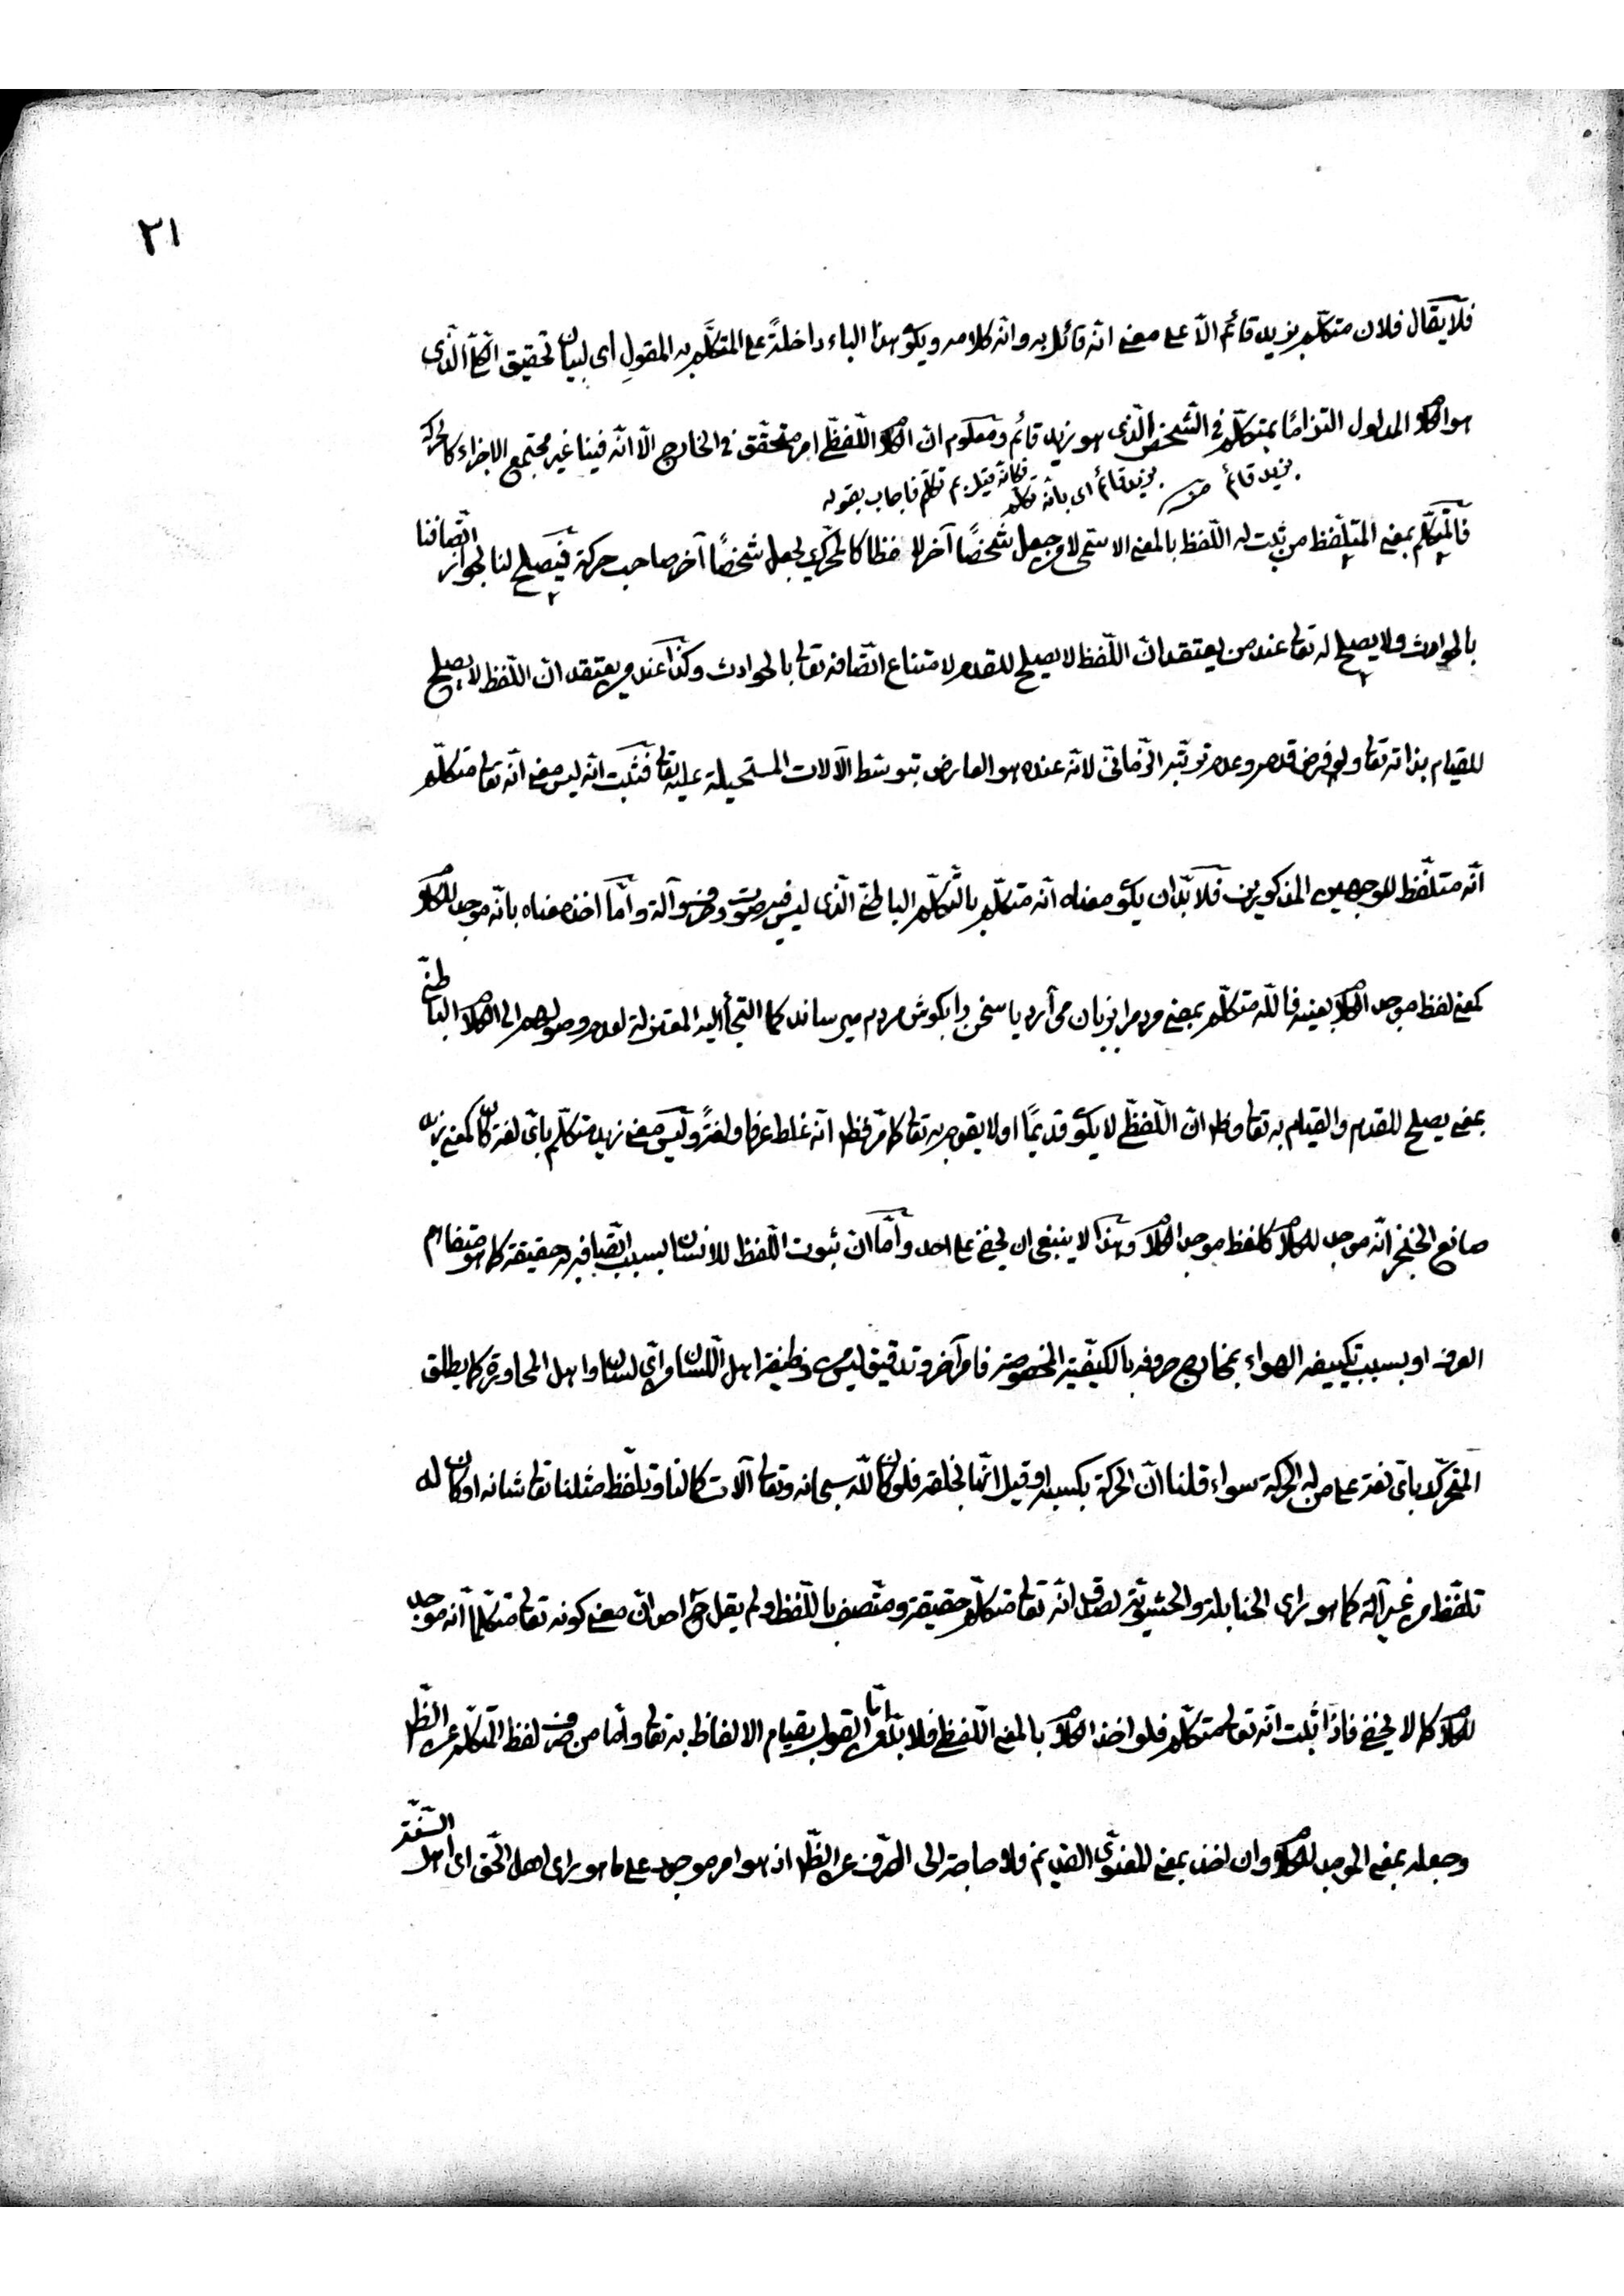 ٢١
فلا يقال فلان متكلّم بزيد قائم الّا على معنى انّه قائل به وانّه كلامه ويكو هذا الباء داخلةً على المتكلَّم به المقولِ اى لبيان تحقيق الذّى
هو الكلا المدلول التزامًا بمتكلّم فى الشّخص الّذى هو بزيد قائم ومعلوم انّ الكلا اللّفظّى امر متحقّق فى الخارج الّا انّه فينا غير مجتمع الاجزاء كالحركة
بزيد قائم بزيد قائم اى بانّه تكلّم فكانّه قيل بم تكلّم فاجاب بقوله
فالمتكلّم بمعنى المتلفّظ من ثبت له اللّفظ بالمعنى لا من جعل شخصًا آخر لافظا كالمحرّك يجعل شخصًا آخر صاحب حركة فيصلح لنا لجواز اتّصافنا
بالحوادث ولا يصلح له تعالى عند من يعتقد انّ اللّفظ لا يصلح للقدم لامتناع اتّصافه تعالى بالحوادث وكذا عند من يعتقد انّ اللّفظ لا يصلح
للقيام بذاته تعالى ولو فرض قدمه وعدم ترتّبه الزّمانّى لانّه عنده هو العارض بتوسّط الآلات المستحيلة عليه تعالى فثبت انّه ليس معنى انّه تعالى متكلّم
انّه متلفّظ للوجهين المذكورين فلا بدّ ان يكو معناه انّه متكلّم بالتّكلّم الباطنّى الّذى ليس فيه صوت وحرف وآلة وامّا اخذ معناه بانّه موجد للكلا
كمعنى لفظ موجد الكلا بعينه فاللّه متكلّم بمعنى مردم را بزبان مى آرد يا سخن را بكوش مردم ميرساند كما التجأ اليه المعتزلة لعدم وصولهم الى الكلا الباطنّى
بمعنى يصلح للقدم والقيام به تعالى وظهر انّ اللّفظّى لا يكو قديمًا او لا يقوم به تعالى كما مرّ فظهر انّه غلط عرفا ولغةً وليس معنى زيد متكلّم باىّ لغة كان كمعنى زيد
صانع الخنجر انّه موجد للكلا كلفظ موجد الكلا وهذا لا ينبغى ان يخفى على احد وامّا انّ ثبوت اللّفظ للانسان بسبب اتّصافه به حقيقة كما هو متفاهم
العرف او بسبب تكييفه الهواء بمخارج حروفه بالكيفيّة المخصوصة فامر آخر وتدقيق ليس من وظيفة اهل اللّسان اىّ لسان واهل المحاورة كما يطلق
المتحرّك باىّ لغة على من له الحركة سواء قلنا انّ الحركة بكسبه او قيل انّها بخلقه فلو كان للّه سبحانه وتعالى آلات كآلاتنا وتلفّظ مثلنا تعالى شانه او كان له
تلفّظ من غير آلة كما هو راى الحنابلة والحشويّة لصدق انّه تعالى متكلّم حقيقة ومتّصف باللّفظ ولم يقل ح احد انّ معنى كونه تعالى متكلّما انّه موجد
للكلا كما لا يخفى فاذا ثبت انّه تعالى متكلّم فلو اخذ الكلا بالمعنى اللّفظى فلا بدّ امّا من القول بقيام الالفاظ به تعالى وامّا من صرف لفظ المتكلّم عن الظّهر
وجعله بمعنى الموجد للكلا وان اخذ بمعنى المعنوّى القديم فلا حاجة الى الصّرف عن الظّهر اذ هو امر موجود على ما هو راى اهل الحق اى اهل السّنّة